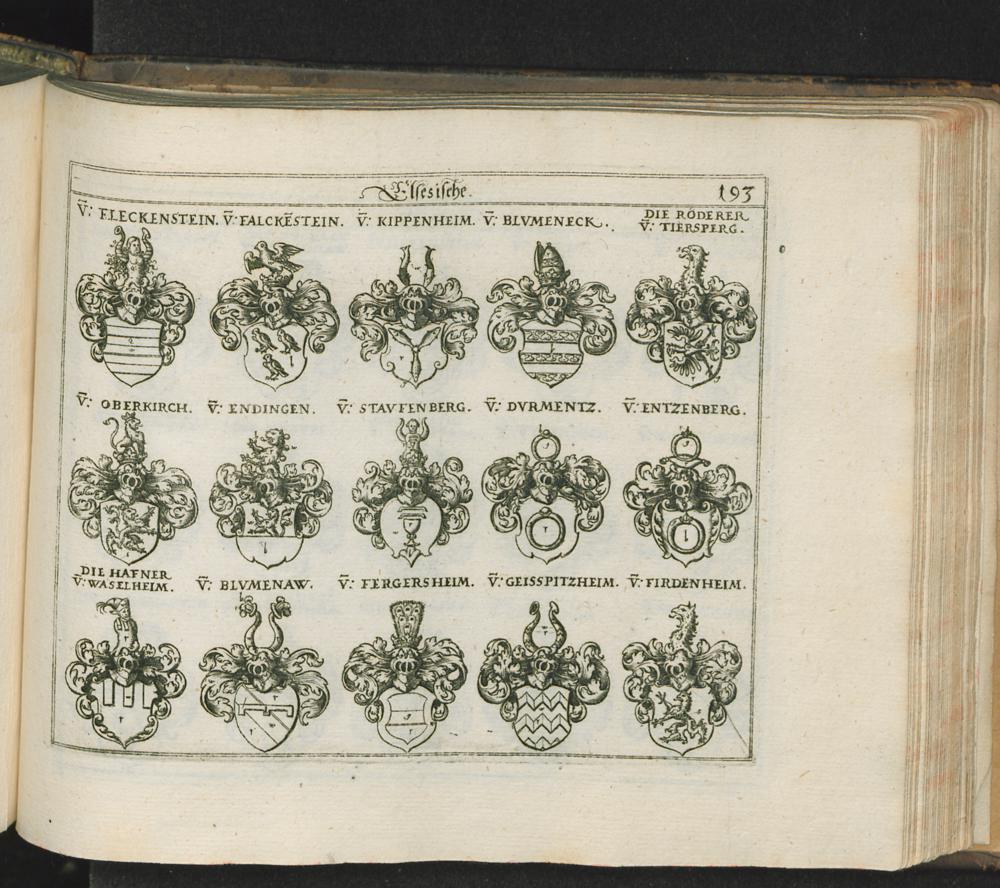 Elsesische.
193
V̄: FLECKENSTEIN. V̄: FALCKĒSTEIN. V̄: KIPPENHEIM. V̄: BLVMENECK. DIE RÖDERER
V̄: TIERSPERG.
V̄: OBERKIRCH. V̄: ENDINGEN. V̄: STAVFENBERG. V̄: DVRMENTZ. V̄: ENTZENBERG.
DIE HAFNER
V̄: WASELHEIM. V̄: BLVMENAW. V̄: FERGERSHEIM. V̄: GEISSPITZHEIM. V̄: FIRDENHEIM.